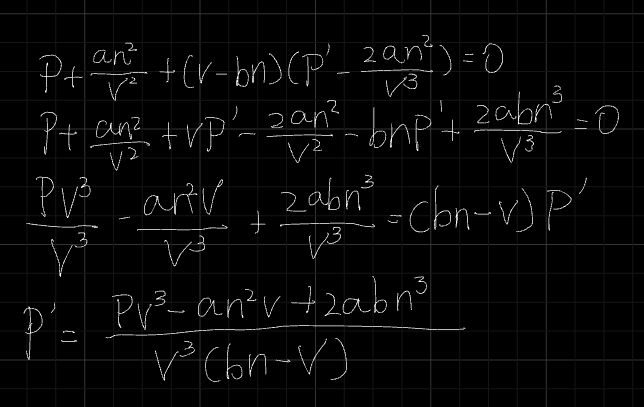 P + an²/V² + (V - bn)(P' - 2an²/V³) = 0
P + an²/V² + VP' - 2an²/V² - bnP' + 2abn³/V³ = 0
PV³/V³ - an²V/V³ + 2abn³/V³ = (bn - V)P'
P' = (PV³ - an²V + 2abn³)/(V³(bn - V))